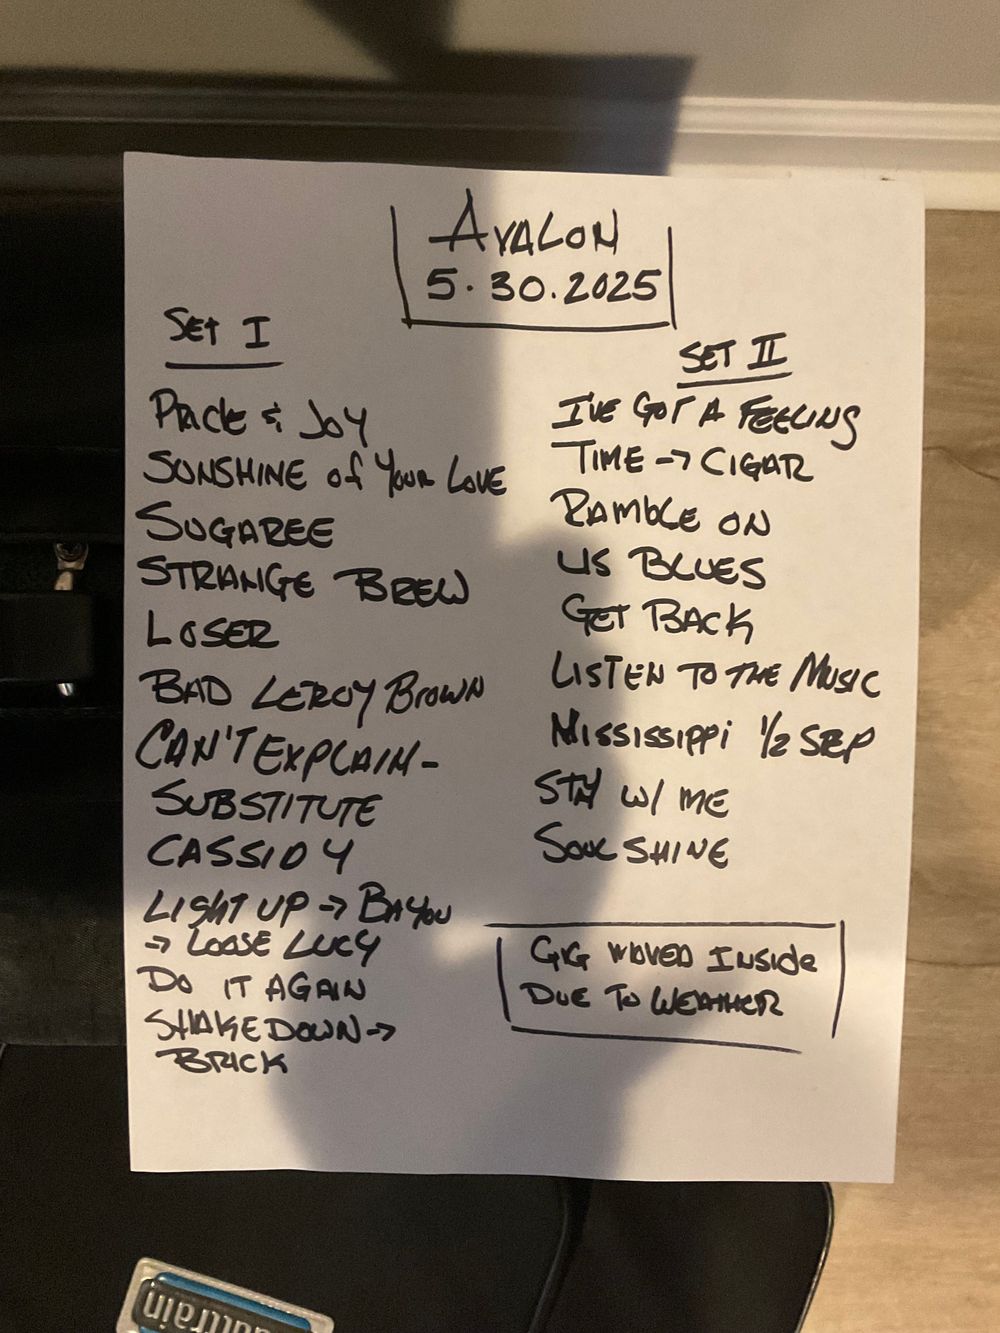 AVALON
5.30.2025
SET I
PRIDE & JOY
SUNSHINE of YOUR LOVE
SUGAREE
STRANGE BREW
LOSER
BAD LEROY BROWN
CAN'T EXPLAIN-
SUBSTITUTE
CASSIDY
LIGHT UP → BAYOU
→ LOOSE LUCY
DO IT AGAIN
SHAKEDOWN →
BRICK
SET II
I'VE GOT A FEELING
TIME → CIGAR
RAMBLE ON
US BLUES
GET BACK
LISTEN TO THE MUSIC
MISSISSIPPI 1/2 STEP
STAY W/ ME
SOULSHINE
GIG MOVED INSIDE
DUE TO WEATHER